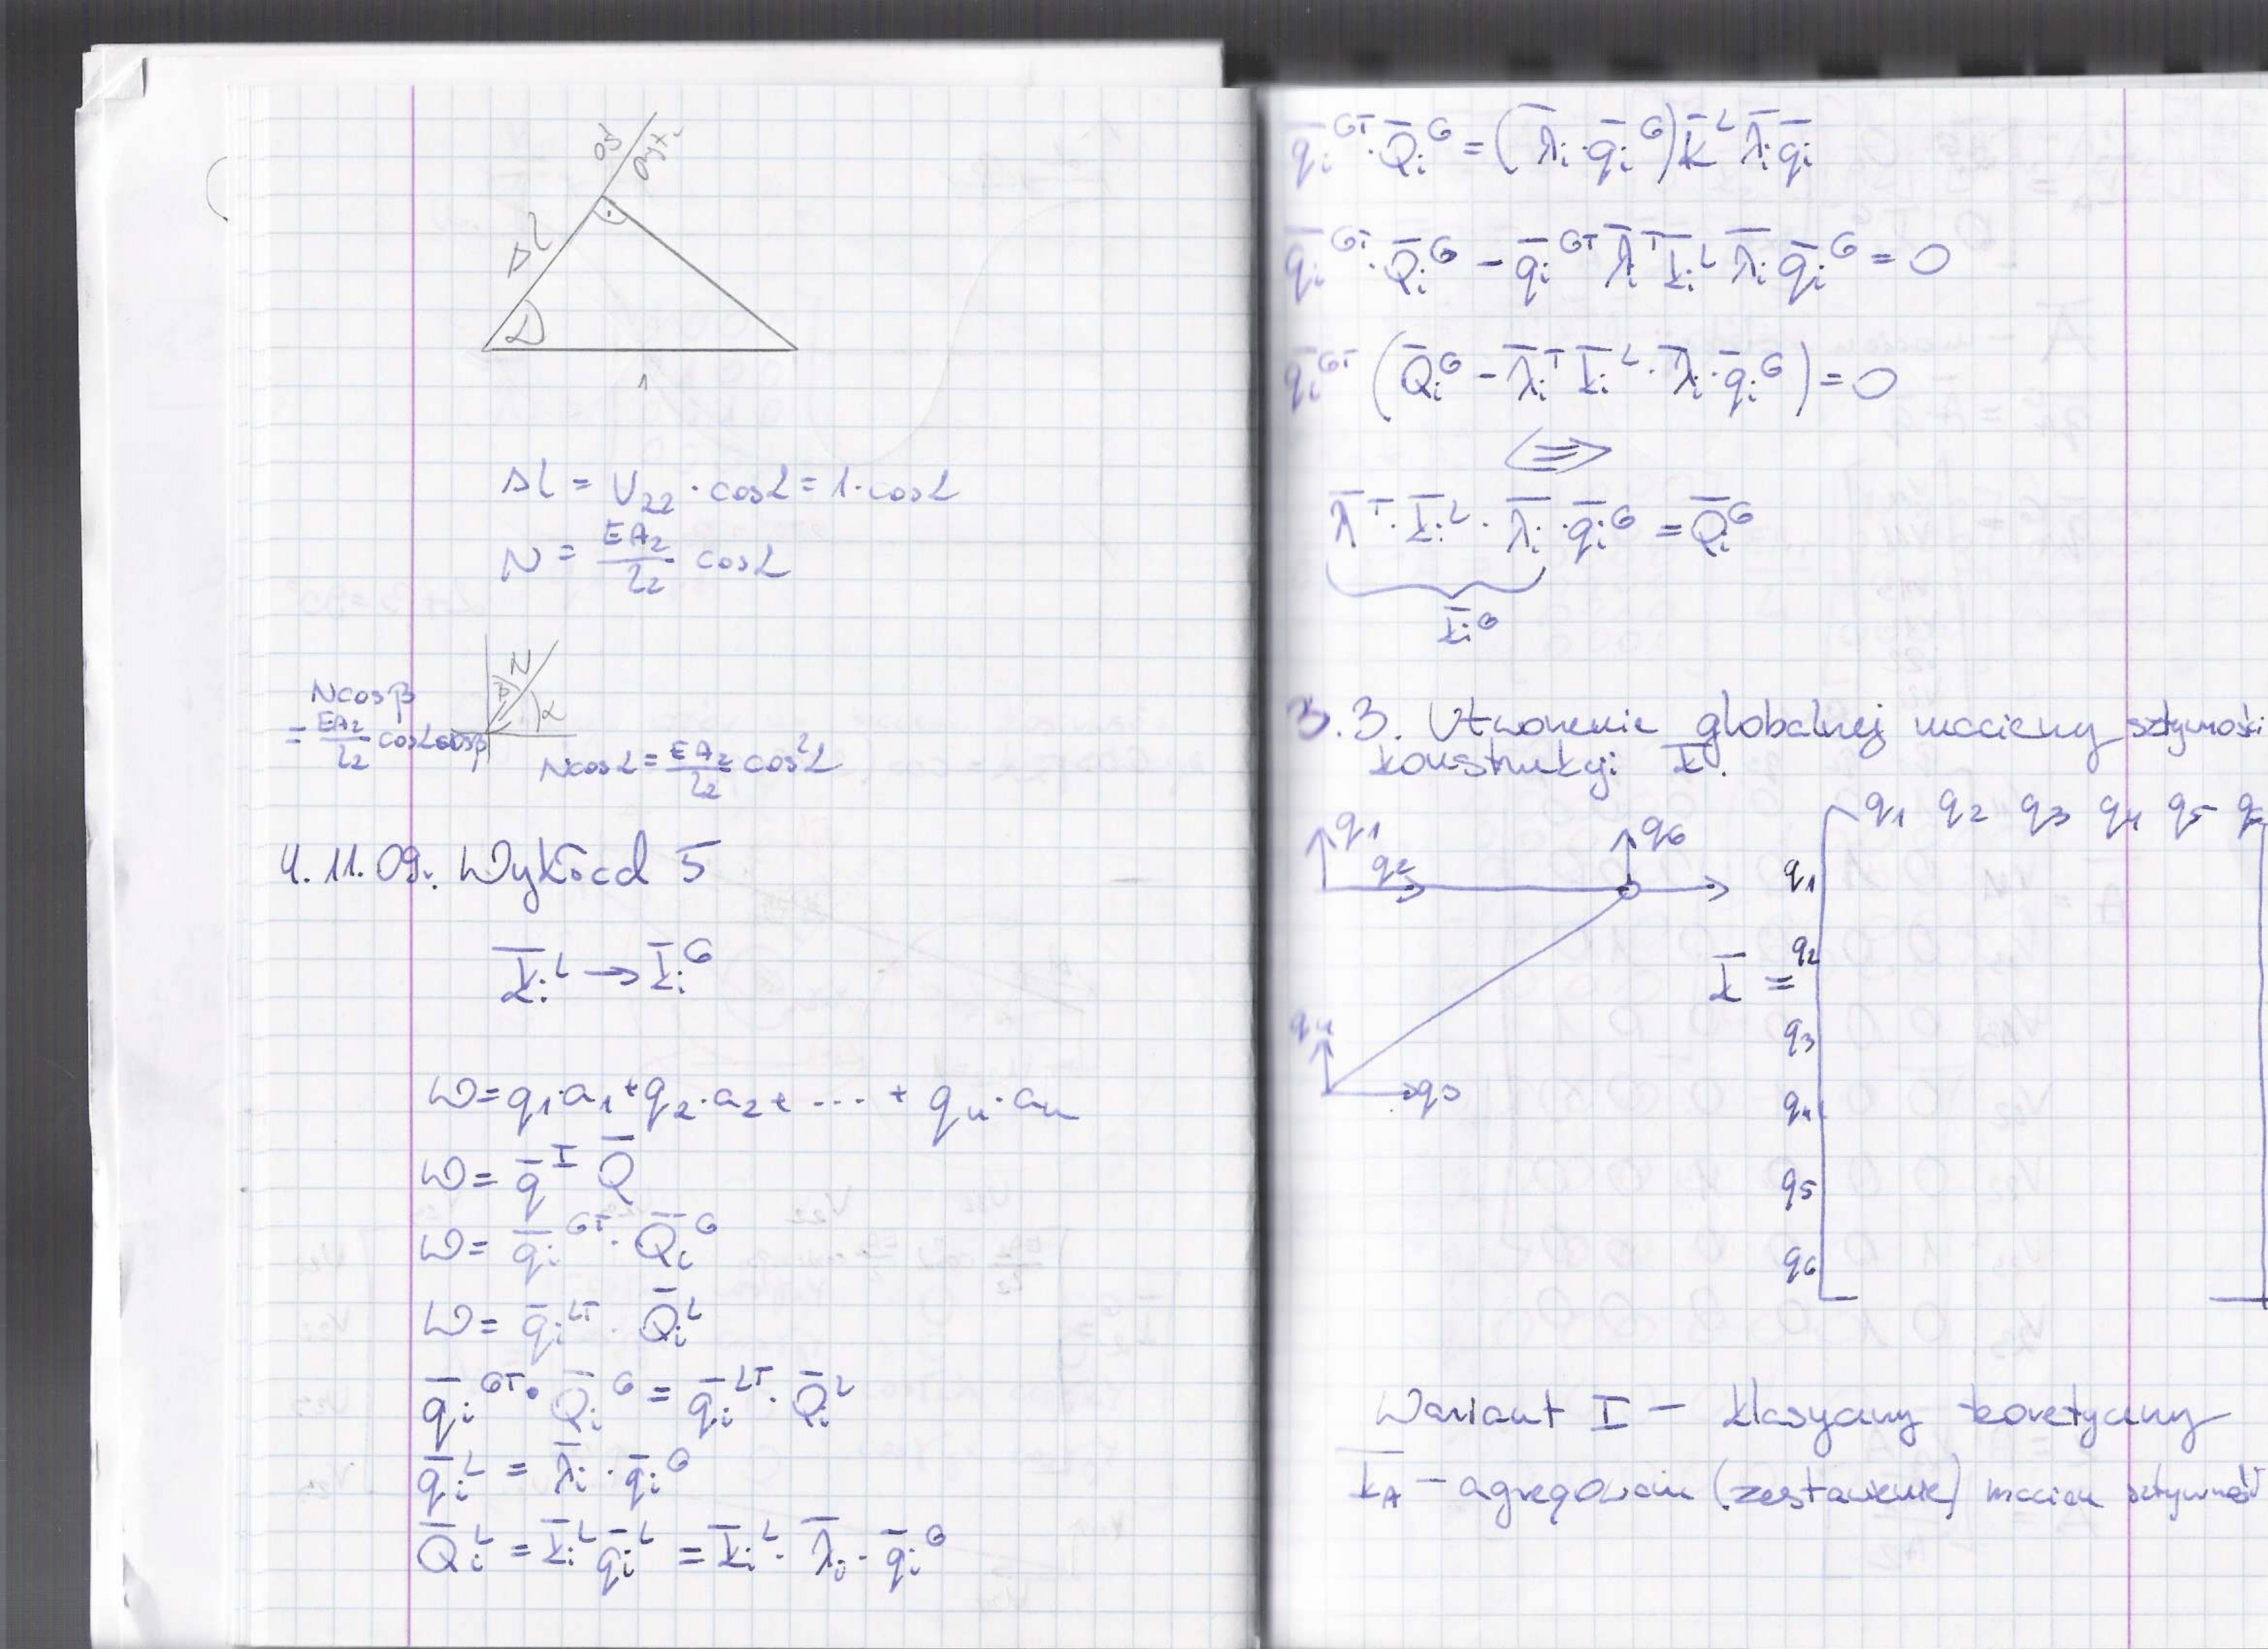 oś
pręta
Δl
α
1
Δl = U₂₂ · cosα = 1 · cosα
N = EA₂/l₂ cosα
N
β
α
Ncosβ
= EA₂/l₂ cosα cosβ
Ncosα = EA₂/l₂ cos²α
4.11.09r. Wykład 5
K̄ᵢᴸ → K̄ᵢᴳ
W = q₁·a₁ + q₂·a₂ + .... + qₙ·aₙ
W = q̄ᵀ Q̄
W = q̄ᵢᴳᵀ · Q̄ᵢᴳ
W = q̄ᵢᴸᵀ · Q̄ᵢᴸ
q̄ᵢᴳᵀ · Q̄ᵢᴳ = q̄ᵢᴸᵀ · Q̄ᵢᴸ
q̄ᵢᴸ = λ̄ᵢ · q̄ᵢᴳ
Q̄ᵢᴸ = K̄ᵢᴸ q̄ᵢᴸ = K̄ᵢᴸ · λ̄ᵢ · q̄ᵢᴳ
q̄ᵢᴳᵀ · Q̄ᵢᴳ = (λ̄ᵢ · q̄ᵢᴳ) K̄ᴸ λ̄ᵢ q̄ᵢ
q̄ᵢᴳᵀ · Q̄ᵢᴳ − q̄ᵢᴳᵀ λ̄ᵢᵀ K̄ᵢᴸ λ̄ᵢ q̄ᵢᴳ = 0
q̄ᵢᴳᵀ (Q̄ᵢᴳ − λ̄ᵢᵀ K̄ᵢᴸ · λ̄ᵢ · q̄ᵢᴳ) = 0
⇔
λ̄ᵀ · K̄ᵢᴸ · λ̄ᵢ · q̄ᵢᴳ = Q̄ᵢᴳ
K̄ᵢᴳ
3.3. Utworzenie globalnej macierzy sztywności
konstrukcji K̄.
q₁
q₂
q₆
q₄
q₃
q₁ q₂ q₃ q₄ q₅ q₆
q₁
q₂
K̄ =
q₃
q₄
q₅
q₆
Wariant I − klasyczny teoretyczny
K̄_A − agregowana (zestawienie) macierz sztywnoś